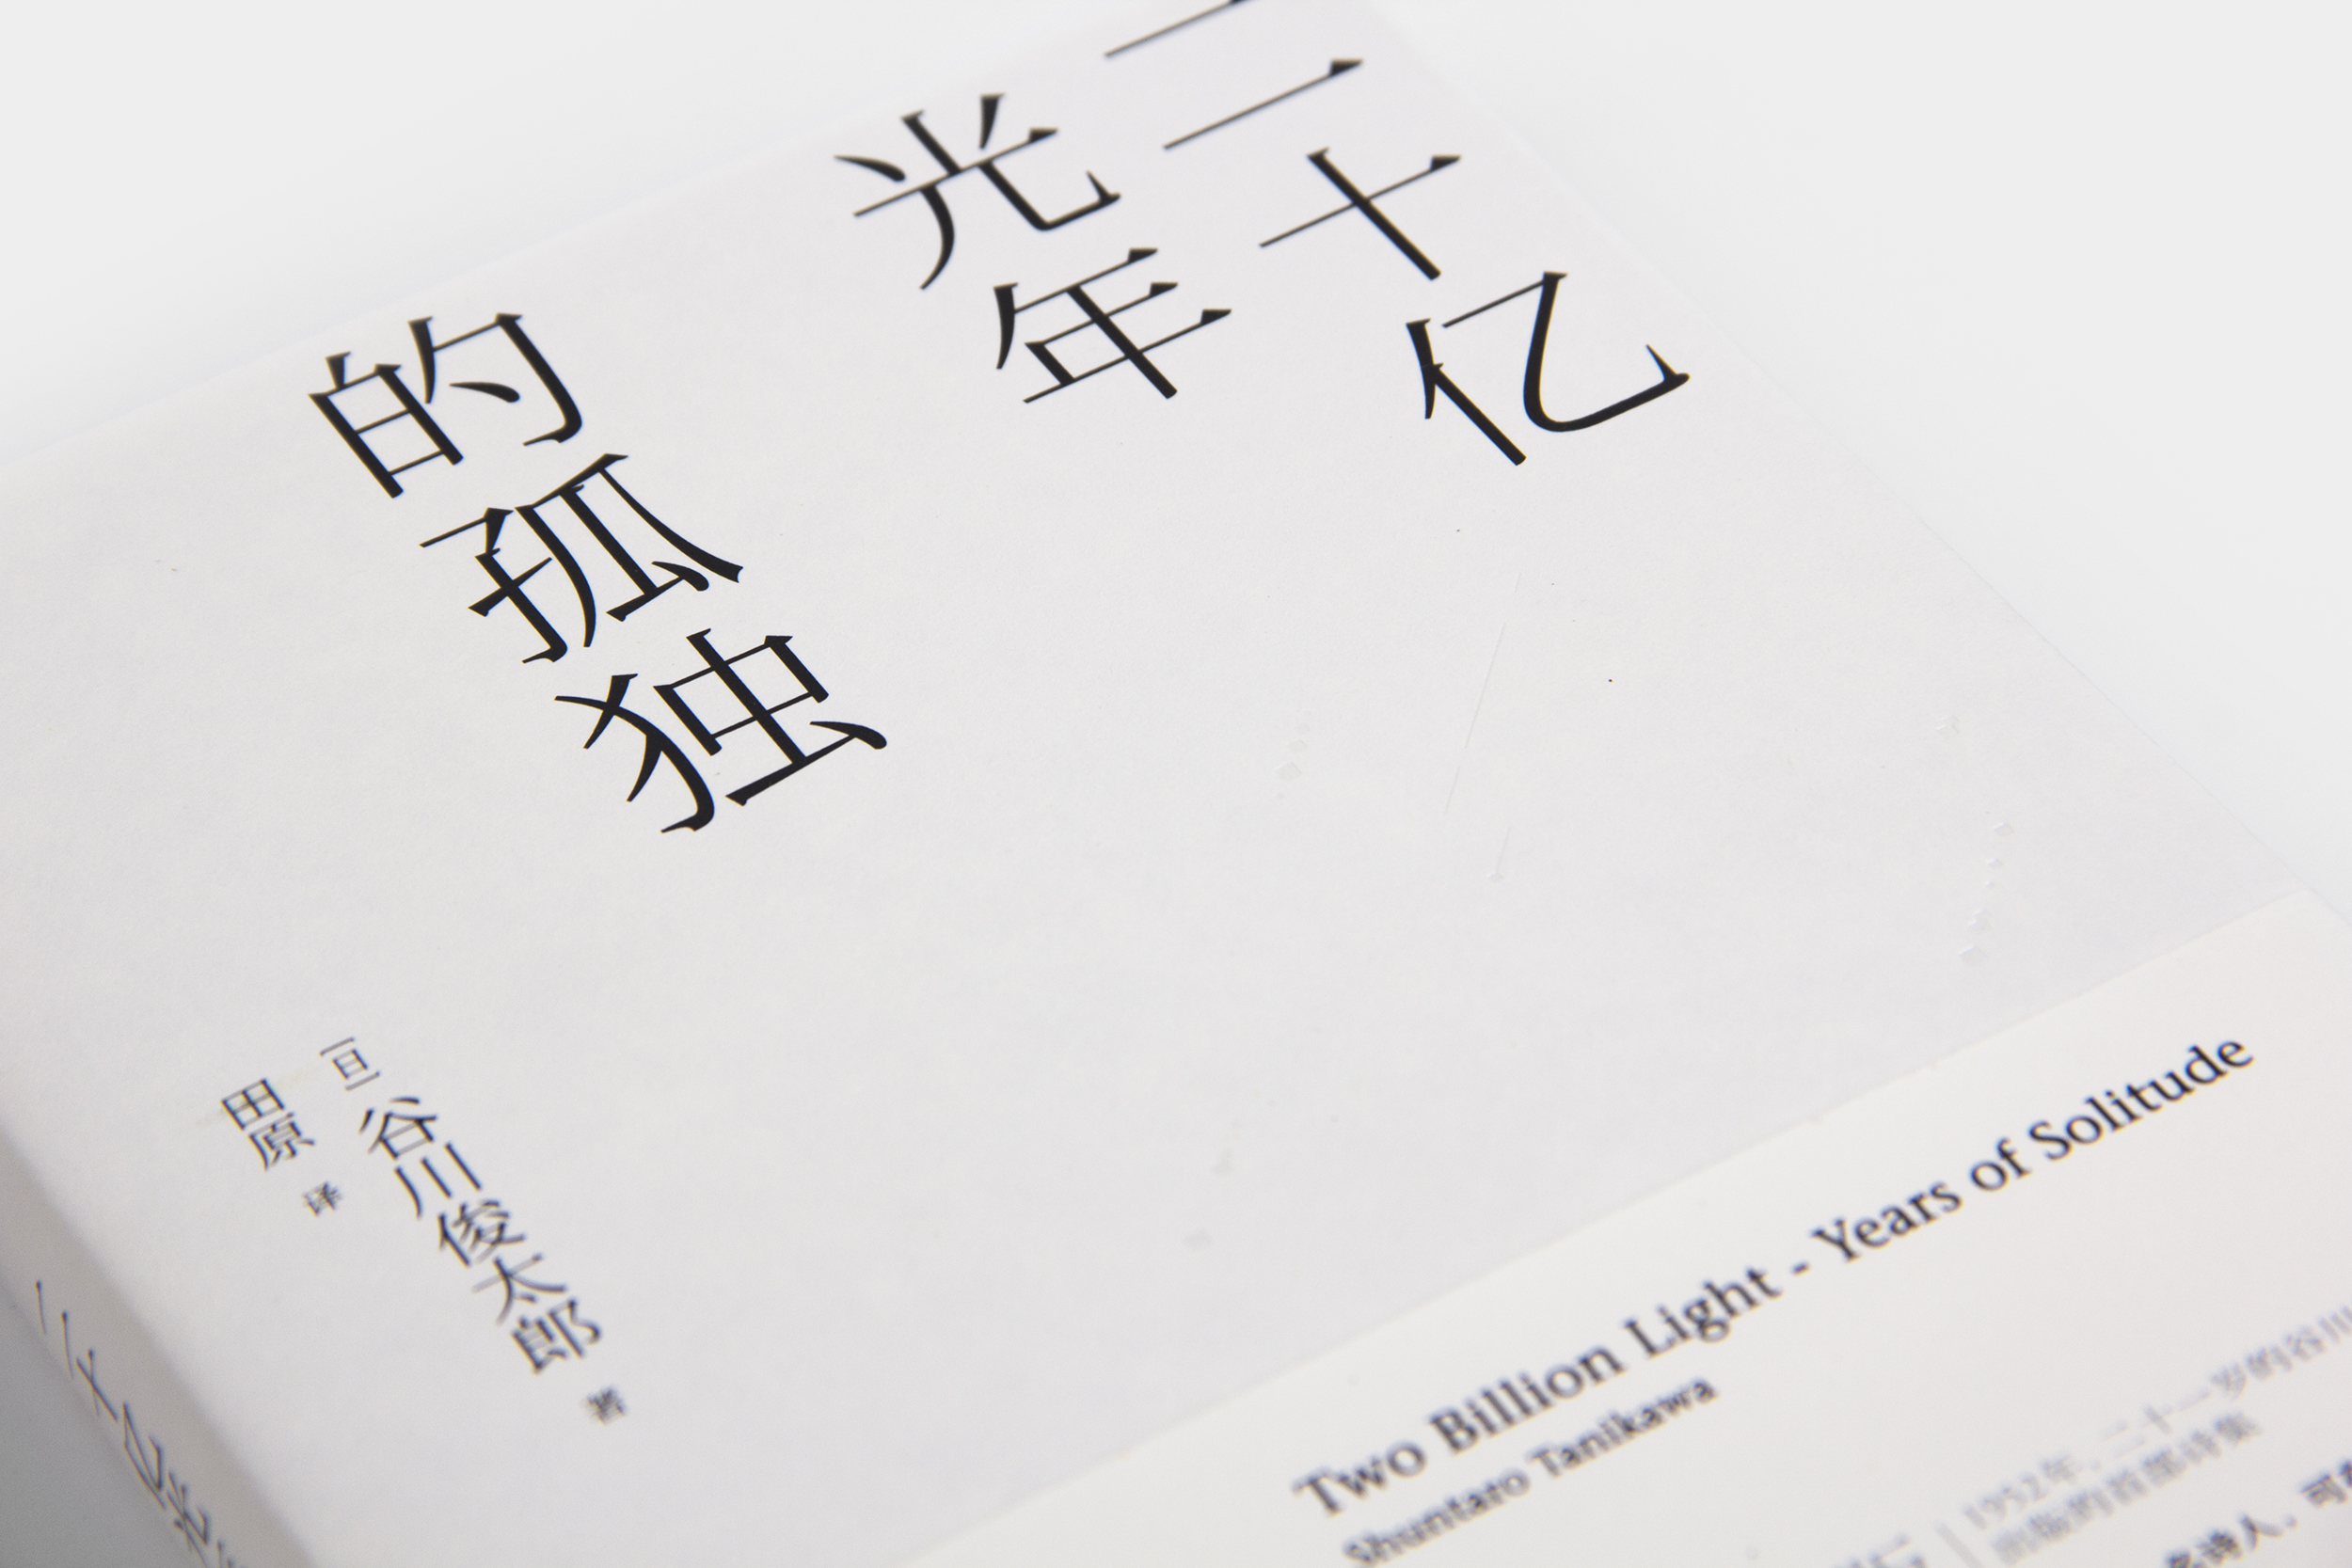 二十亿
光年
的孤独
[日]谷川俊太郎 著
田原 译
二十亿光
Two Billion Light - Years of Solitude
Shuntaro Tanikawa
1952年，二十一岁的谷川
出版的首部诗集
名诗人，可